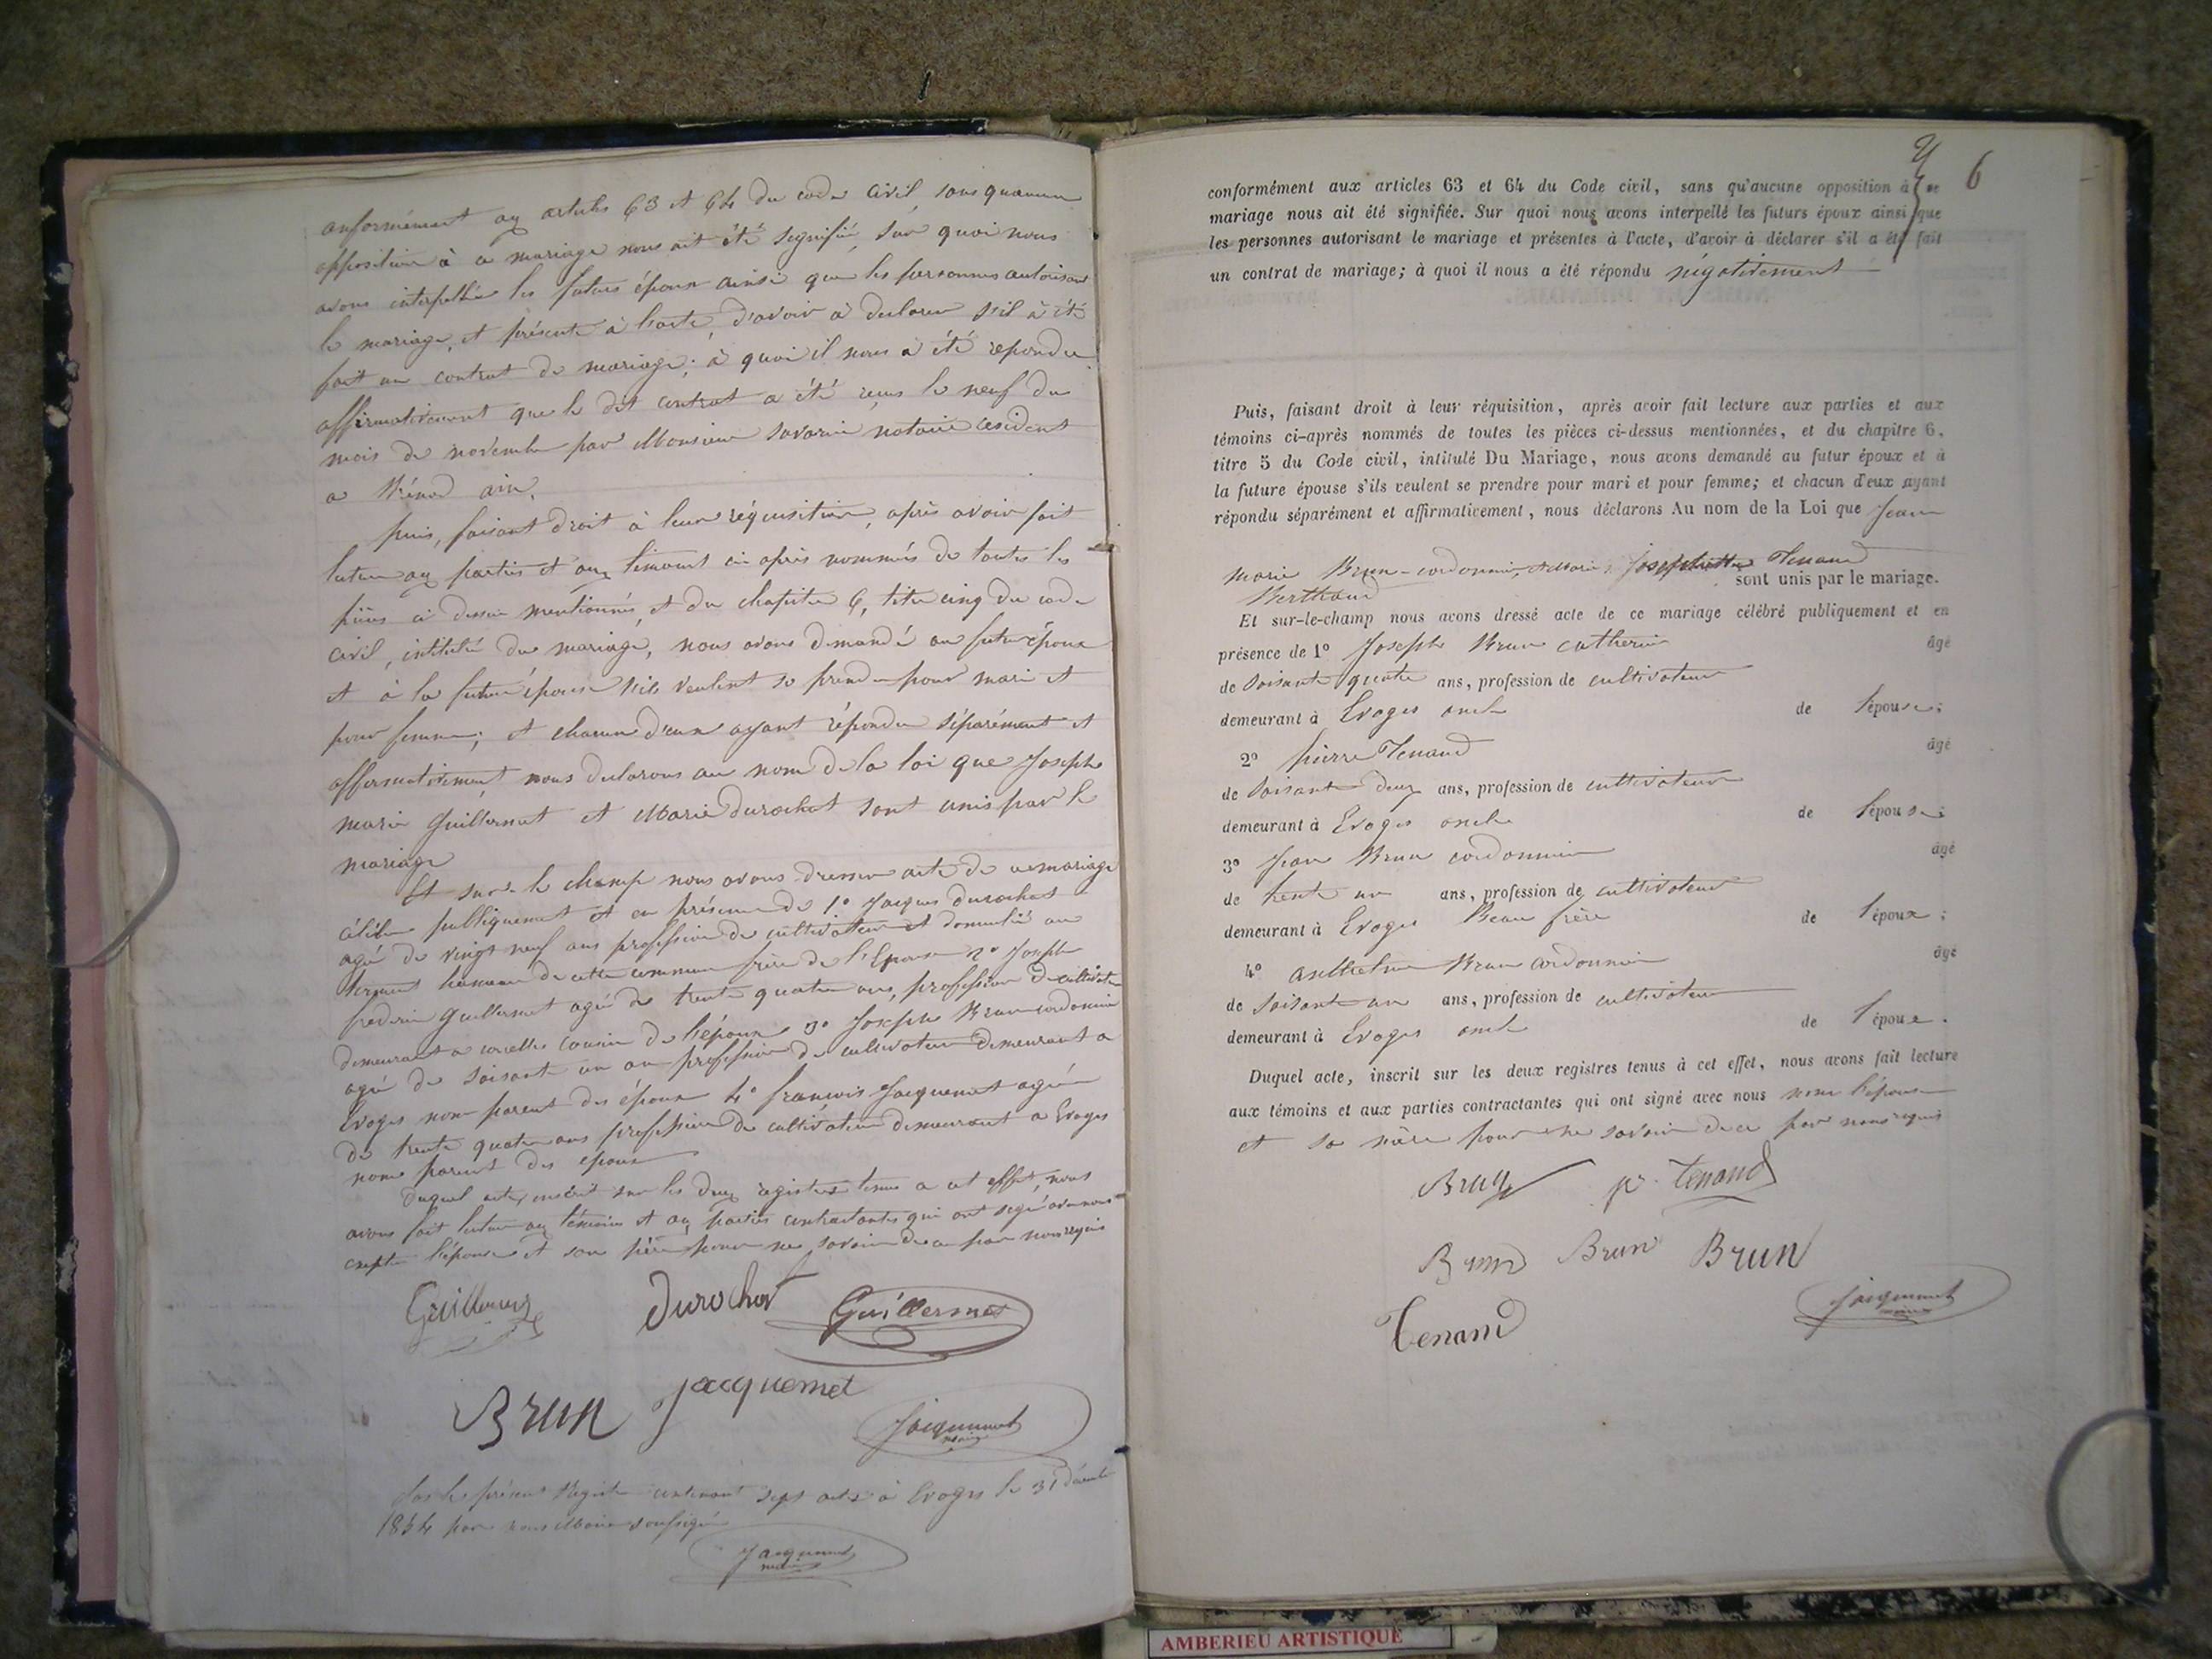 conformément aux articles 63 et 64 du code civil, sans quaucune
opposition à ce mariage nous ait été signifiée, sur quoi nous
avons interpellée les futurs époux ainsi que les personnes autorisant
le mariage, et présente à l'acte, d'avoir à declarer s'il à été
fait un contrat de mariage; à quoi il nous à été repondu
affirmativement que le dit contrat a été reçus le neuf du
mois de novembre par Monsieur Savarin notaire résident
a Brénod ain.
puis, faisant droit à leur réquisition, après avoir fait
lecture aux parties et aux témoins ci après nommés de toutes les
pièces ci dessus mentionnées, et du chapitre 6, titre cinq du code
civil, intitulé du mariage, nous avons demandé au futur époux
et à la future épouse s'ils veulent se prendre pour mari et
pour femme; et chacun d'eux ayant répondu séparément et
affirmativement, nous declarons au nom de la loi que Joseph
marie Guillermet et Marie Durochat sont unis par le
mariage
Et sur le champ nous avons dresser acte de ce mariage
célébre publiquement et en présence de 1° Jacques durochat
agé de vingt neuf ans profession de cultivateur et domicilié au
hameau de cette commune frère de l'Epouse 2° Joseph
frederic guillermet agé de trente quatre ans, profession de cultivateur
demeurant a corcelles cousin de l'époux 3° Joseph Brun cordonnier
agé de soisante un an profession de cultivateur demeurant a
Evoges non parent des époux 4° françois Jacquemet agé
de trente quatre ans profession de cultivateur demeurant a Evoges
nom parent des epoux
duquel acte, inscrit sur les deux registres tenus a cet effet, nous
avons fait lecture aux témoins et aux parties contractantes qui ont signé avec nous
excepté l'épouse et son père pour ne savoir de ce par nous requis
Guillermet Durochat Guillermet
Brun Jacquemet
Jacquemet
maire
Clos le présent Registre contenant sept actes à Evoges le 31 décembre
1854 par nous Maire soussigné
Jacquemet
maire
6
conformément aux articles 63 et 64 du Code civil, sans qu'aucune opposition à ce
mariage nous ait été signifiée. Sur quoi nous avons interpellé les futurs époux ainsi que
les personnes autorisant le mariage et présentes à l'acte, d'avoir à déclarer s'il a été fait
un contrat de mariage; à quoi il nous a été répondu négativement
Puis, faisant droit à leur réquisition, après avoir fait lecture aux parties et aux
témoins ci-après nommés de toutes les pièces ci-dessus mentionnées, et du chapitre 6,
titre 5 du Code civil, intitulé Du Mariage, nous avons demandé au futur époux et à
la future épouse s'ils veulent se prendre pour mari et pour femme; et chacun d'eux ayant
répondu séparément et affirmativement, nous déclarons Au nom de la Loi que Jean
marie Brun-cordonnier, et Marie Josephette Tenand
Berthaud sont unis par le mariage.
Et sur-le-champ nous avons dressé acte de ce mariage célébré publiquement et en
présence de 1° Joseph Brun catherin âgé
de soisante quatre ans, profession de cultivateur
demeurant à Evoges oncle de l'épouse;
2° pierre Tenand âgé
de soisante deux ans, profession de cultivateur
demeurant à Evoges oncle de l'épouse;
3° Jean Brun cordonnier âgé
de trente un ans, profession de cultivateur
demeurant à Evoges Beau frère de l'époux;
4° anthelme Brun cordonnier âgé
de soisante un ans, profession de cultivateur
demeurant à Evoges oncle de l'époux.
Duquel acte, inscrit sur les deux registres tenus à cet effet, nous avons fait lecture
aux témoins et aux parties contractantes qui ont signé avec nous non l'épouse
et sa mère pour ne savoir de ce par nous requis
Brun p. Tenand
Brun Brun Brun
Tenand
Jacquemet
maire
AMBERIEU ARTISTIQUE